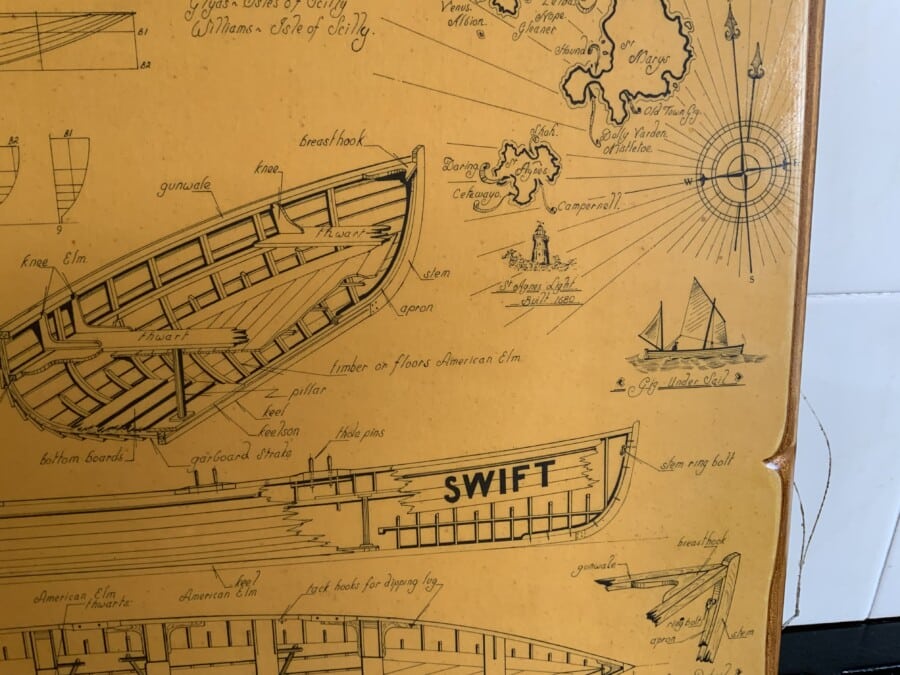 Glyds ~ Isles of Scilly
Williams ~ Isle of Scilly.
Venus.
Albion.
Hope
Gleaner
Hound
St Marys
Old Town Gig.
Dolly Varden.
Mistletoe.
B1
B2
B2
B1
9
Shah.
Daring
St Agnes
Cetewayo.
Campernell.
W
E
S
St Agnes Light.
Built 1680.
Gig Under Sail
breast hook
knee
gunwale
thwart
knee Elm
stem
apron
thwart
timber or floors American Elm
pillar
keel
keelson
bottom boards
garboard strake
thole pins
SWIFT
stem ring bolt
keel
American Elm
American Elm
thwarts
tack hooks for dipping lug
breast hook
gunwale
ring bolt
apron
stem